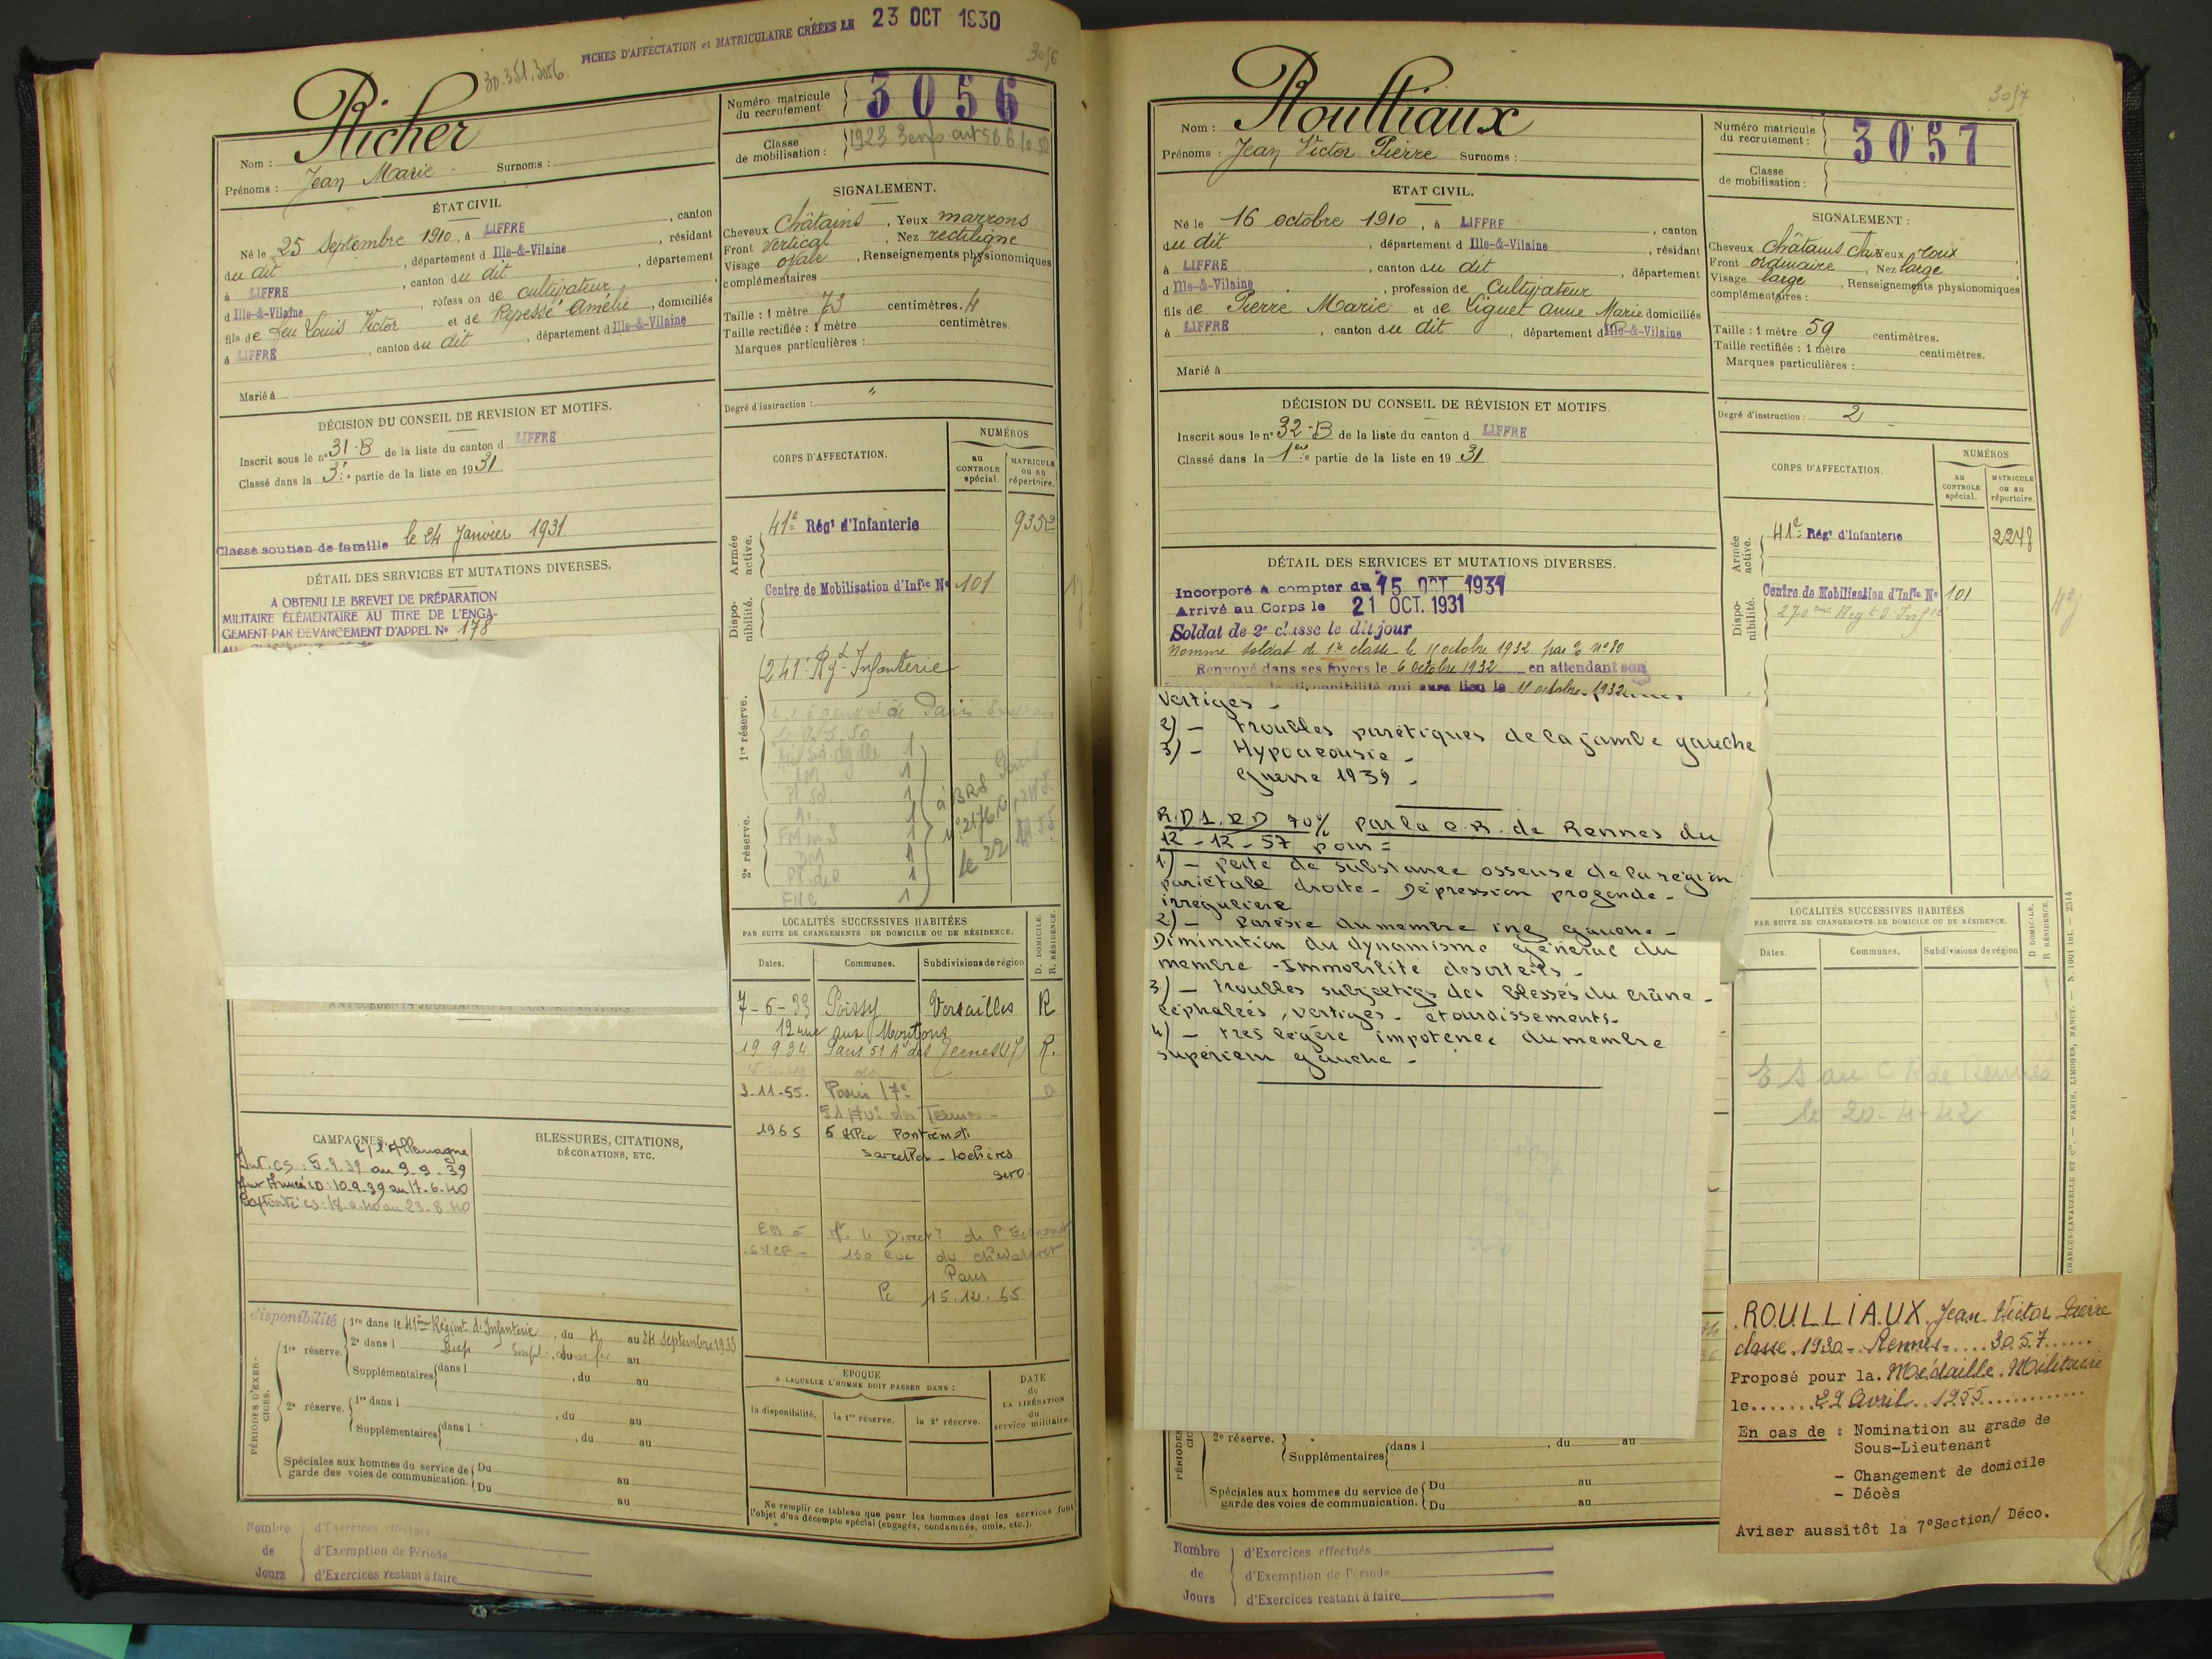 FICHES D'AFFECTATION et MATRICULAIRE CRÉÉES LE 23 OCT 1930
30.351.3056.
Richer
Nom :
Prénoms : Jean Marie Surnoms :
Numéro matricule du recrutement 3056
Classe de mobilisation : 1923
ÉTAT CIVIL
Né le 25 Septembre 1910, à LIFFRE, canton
du dit, département d Ille-&-Vilaine, résidant
à LIFFRE, canton du dit, département
d Ille-&-Vilaine, rofess on de cultivateur
fils de feu Louis Victor et de Repessé Amélie, domiciliés
à LIFFRE, canton du dit, département d Ille-&-Vilaine
Marié à
SIGNALEMENT.
Cheveux Châtains, Yeux marrons
Front vertical, Nez rectiligne
Visage ovale, Renseignements physionomiques
complémentaires
Taille : 1 mètre 73 centimètres. 4
Taille rectifiée : 1 mètre centimètres.
Marques particulières :
Degré d'instruction : "
DÉCISION DU CONSEIL DE REVISION ET MOTIFS.
Inscrit sous le n° 31-B de la liste du canton d LIFFRE
Classé dans la 3e partie de la liste en 1931.
Classé soutien de famille le 24 Janvier 1931
DÉTAIL DES SERVICES ET MUTATIONS DIVERSES.
A OBTENU LE BREVET DE PRÉPARATION
MILITAIRE ÉLÉMENTAIRE AU TITRE DE L'ENGA-
GEMENT PAR DEVANCEMENT D'APPEL N° 178
CORPS D'AFFECTATION.
NUMÉROS
au CONTROLE spécial.
MATRICULE ou au répertoire.
Armée active.
41e Régt d'Infanterie 9352
Dispo-nibilité.
Centre de Mobilisation d'Infie N° 101
1re réserve.
241e Rgt Infanterie
2e réserve.
le 22
LOCALITÉS SUCCESSIVES HABITÉES
PAR SUITE DE CHANGEMENTS DE DOMICILE OU DE RÉSIDENCE.
D. DOMICILE.
R. RÉSIDENCE.
Dates. Communes. Subdivisions de région
7-6-33 Poissy Versailles R
12 rue aux Moutons
19 9 34 Paris 51 Av des Ternes (17) R.
3-11-55. Paris 17e D
51 Av. des Ternes -
1965 5 Allée Pontrémoli
Sarcelles - Lochères
S et O
SNCF - 130 Rue du Chevaleret
Paris
Pc 15.12.65
CAMPAGNES
C/ l'Allemagne
Int. CS : 5.9.39 au 9.9.39
Aux Armées CD : 10-9-39 au 17-6-40
Captivité CS : 18-6-40 au 23-8-40
BLESSURES, CITATIONS,
DÉCORATIONS, ETC.
disponibilité
PÉRIODES D'EXER-CICES.
1re réserve.
1re dans le 41e Régiment d'Infanterie, du 4 au 24 Septembre 1933
2e dans l , du au
Supplémentaires dans l , du au
2e réserve.
1re dans l , du au
Supplémentaires dans l , du au
Spéciales aux hommes du service de garde des voies de communication. Du au
Du au
EPOQUE
A LAQUELLE L'HOMME DOIT PASSER DANS :
la disponibilité. la 1re réserve. la 2e réserve.
DATE de LA LIBÉRATION du service militaire.
Ne remplir ce tableau que pour les hommes dont les services font
l'objet d'un décompte spécial (engagés, condamnés, omis, etc.).
Nombre de Jours
d'Exercices effectués
d'Exemption de Période
d'Exercices restant à faire
3057
Nom : Roulliaux
Prénoms : Jean Victor Pierre Surnoms :
Numéro matricule du recrutement : 3057
Classe de mobilisation :
ETAT CIVIL.
Né le 16 octobre 1910, à LIFFRE, canton
du dit, département d Ille-&-Vilaine, résidant
à LIFFRE, canton du dit, département
d Ille-&-Vilaine, profession de Cultivateur
fils de Pierre Marie et de Liguet anne Marie domiciliés
à LIFFRE, canton du dit, département d Ille-&-Vilaine
Marié à
SIGNALEMENT :
Cheveux Châtains clair Yeux roux
Front ordinaire, Nez large
Visage large, Renseignements physionomiques
complémentaires :
Taille : 1 mètre 59 centimètres.
Taille rectifiée : 1 mètre centimètres.
Marques particulières :
Degré d'instruction : 2
DÉCISION DU CONSEIL DE RÉVISION ET MOTIFS.
Inscrit sous le n° 32-B de la liste du canton d LIFFRE
Classé dans la 1ere partie de la liste en 19 31
DÉTAIL DES SERVICES ET MUTATIONS DIVERSES.
Incorporé à compter du 15 OCT 1931
Arrivé au Corps le 21 OCT. 1931
Soldat de 2e classe le dit jour
Nommé soldat de 1re classe le 11 octobre 1932 par O n° 80
Renvoyé dans ses foyers le 6 octobre 1932 en attendant son
la disponibilité qui aura lieu le 11 octobre 1932
CORPS D'AFFECTATION.
NUMÉROS
au CONTROLE spécial.
MATRICULE ou au répertoire.
Armée active.
41e Régt d'Infanterie 2248
Dispo-nibilité.
Centre de Mobilisation d'Infie N° 101
270eme Regt d'Infie
vertiges -
2) - troubles parétiques de la jambe gauche
3) - Hypoacousie -
Guerre 1939 -
R.D 1. RD 70% par la C.R. de Rennes du
12-12-57 pour =
1) - perte de substance osseuse de la région
pariétale droite - Dépression profonde -
irrégulière
2) - Parésie du membre inf gauche -
Diminution du dynamisme général du
membre - Immobilité des orteils -
3) - troubles subjectifs des blessés du crâne -
céphalées, vertiges - étourdissements -
4) - très légère impotence du membre
supérieur gauche -
LOCALITÉS SUCCESSIVES HABITÉES
PAR SUITE DE CHANGEMENTS DE DOMICILE OU DE RÉSIDENCE.
D DOMICILE.
R RÉSIDENCE.
Dates. Communes. Subdivisions de région
E S au C R de Rennes
le 20-4-42
CHARLES-LAVAUZELLE ET Cie. — PARIS, LIMOGES, NANCY.
ROULLIAUX Jean Victor Pierre
classe 1930 - Rennes - 3057
Proposé pour la Médaille Militaire
le 29 Avril 1955
En cas de : Nomination au grade de
Sous-Lieutenant
- Changement de domicile
- Décès
Aviser aussitôt la 7°Section/ Déco.
2e réserve.
Supplémentaires dans l , du au
Spéciales aux hommes du service de garde des voies de communication. Du au
Du au
Nombre de Jours
d'Exercices effectués
d'Exemption de Période
d'Exercices restant à faire